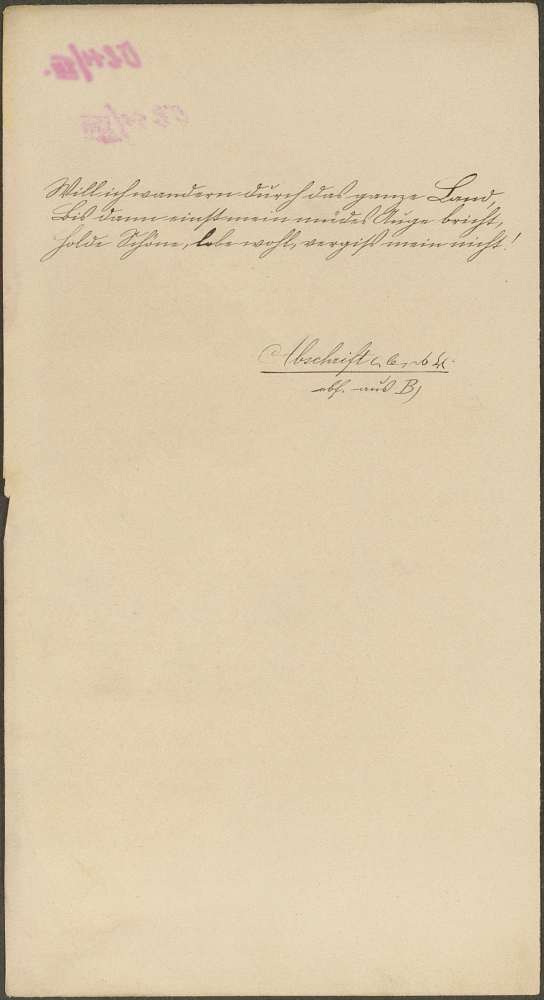 Will ich wandern durch das ganze Land,
Bis dann einst mein müdes Auge bricht,
holde Schöne, lebe wohl, vergiß mein nicht!
Abschrift
abs. aus B)